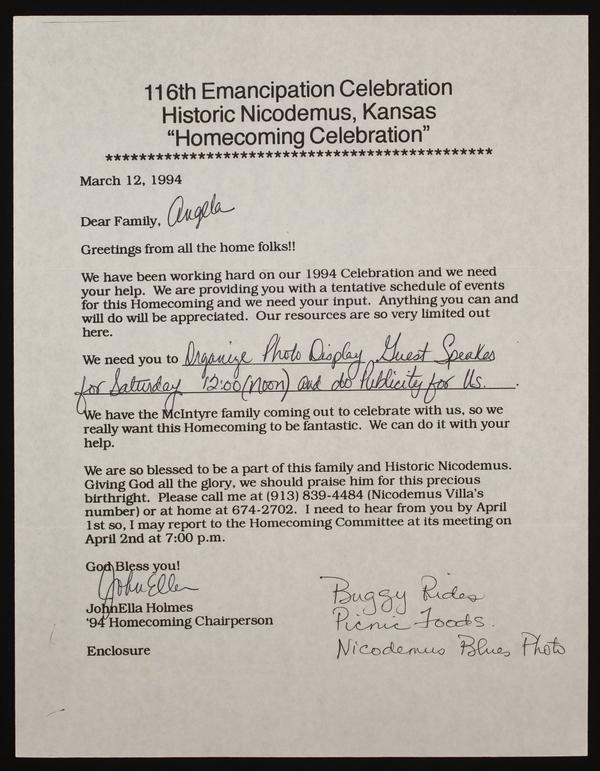 116th Emancipation Celebration
Historic Nicodemus, Kansas
"Homecoming Celebration"
*********************************************
March 12, 1994
Dear Family, Angela
Greetings from all the home folks!!
We have been working hard on our 1994 Celebration and we need
your help. We are providing you with a tentative schedule of events
for this Homecoming and we need your input. Anything you can and
will do will be appreciated. Our resources are so very limited out
here.
We need you to Organize Photo Display, Guest Speaker
for Saturday 12:00 (noon) and do Publicity for Us.
We have the McIntyre family coming out to celebrate with us, so we
really want this Homecoming to be fantastic. We can do it with your
help.
We are so blessed to be a part of this family and Historic Nicodemus.
Giving God all the glory, we should praise him for this precious
birthright. Please call me at (913) 839-4484 (Nicodemus Villa's
number) or at home at 674-2702. I need to hear from you by April
1st so, I may report to the Homecoming Committee at its meeting on
April 2nd at 7:00 p.m.
God Bless you!
JohnElla
JohnElla Holmes
'94 Homecoming Chairperson
Enclosure
Buggy Rides
Picnic Foods.
Nicodemus Blues Photo